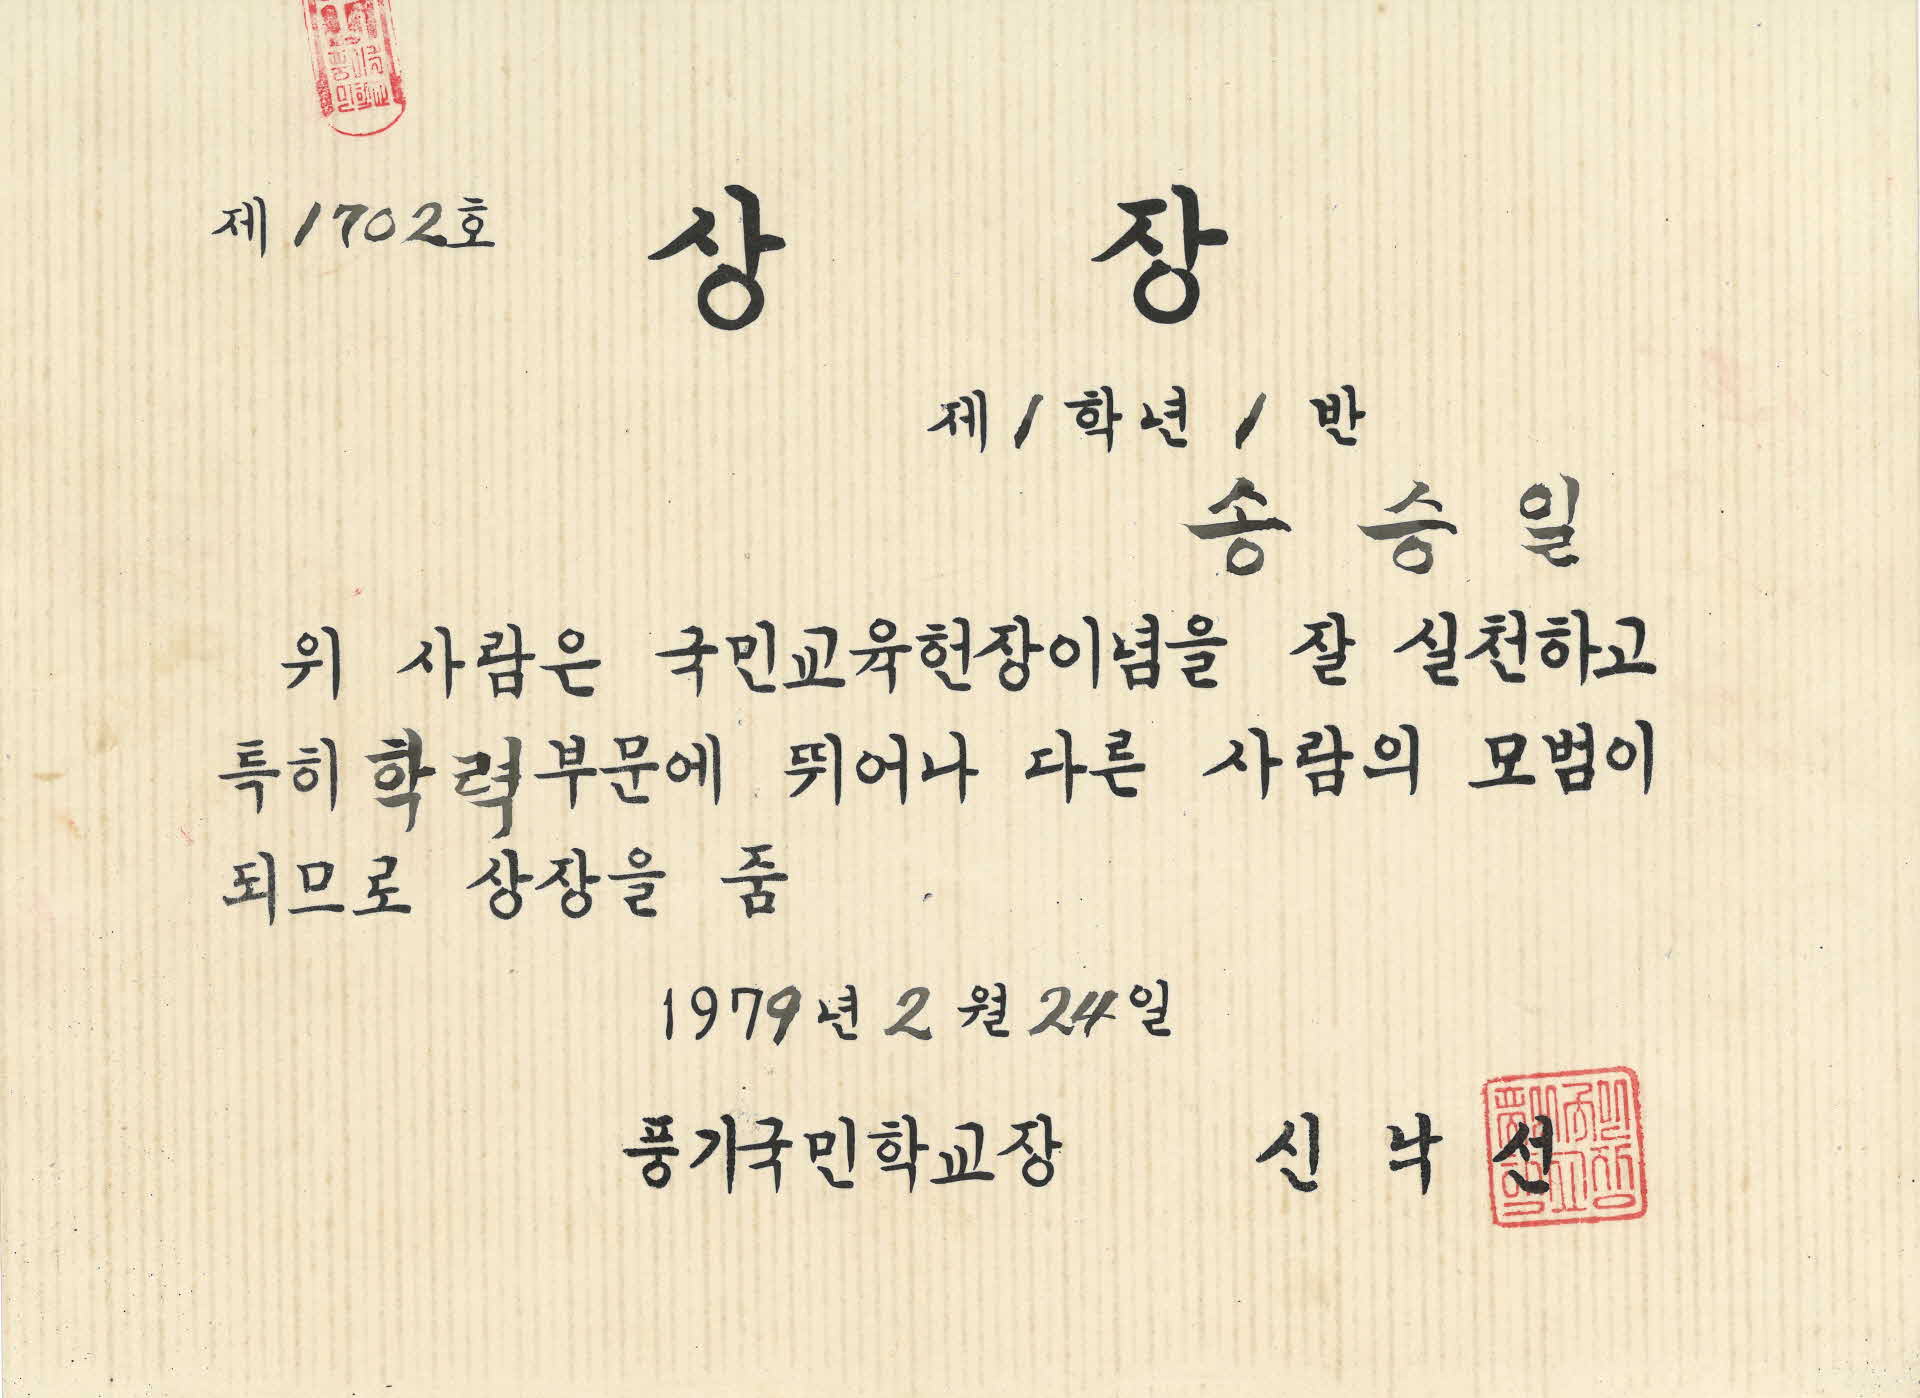 제 1702호
상 장
제 1 학년 1 반
송 승 일
위 사람은 국민교육헌장이념을 잘 실천하고
특히 학력부문에 뛰어나 다른 사람의 모범이
되므로 상장을 줌
1979년 2월 24일
풍기국민학교장 신 낙 선